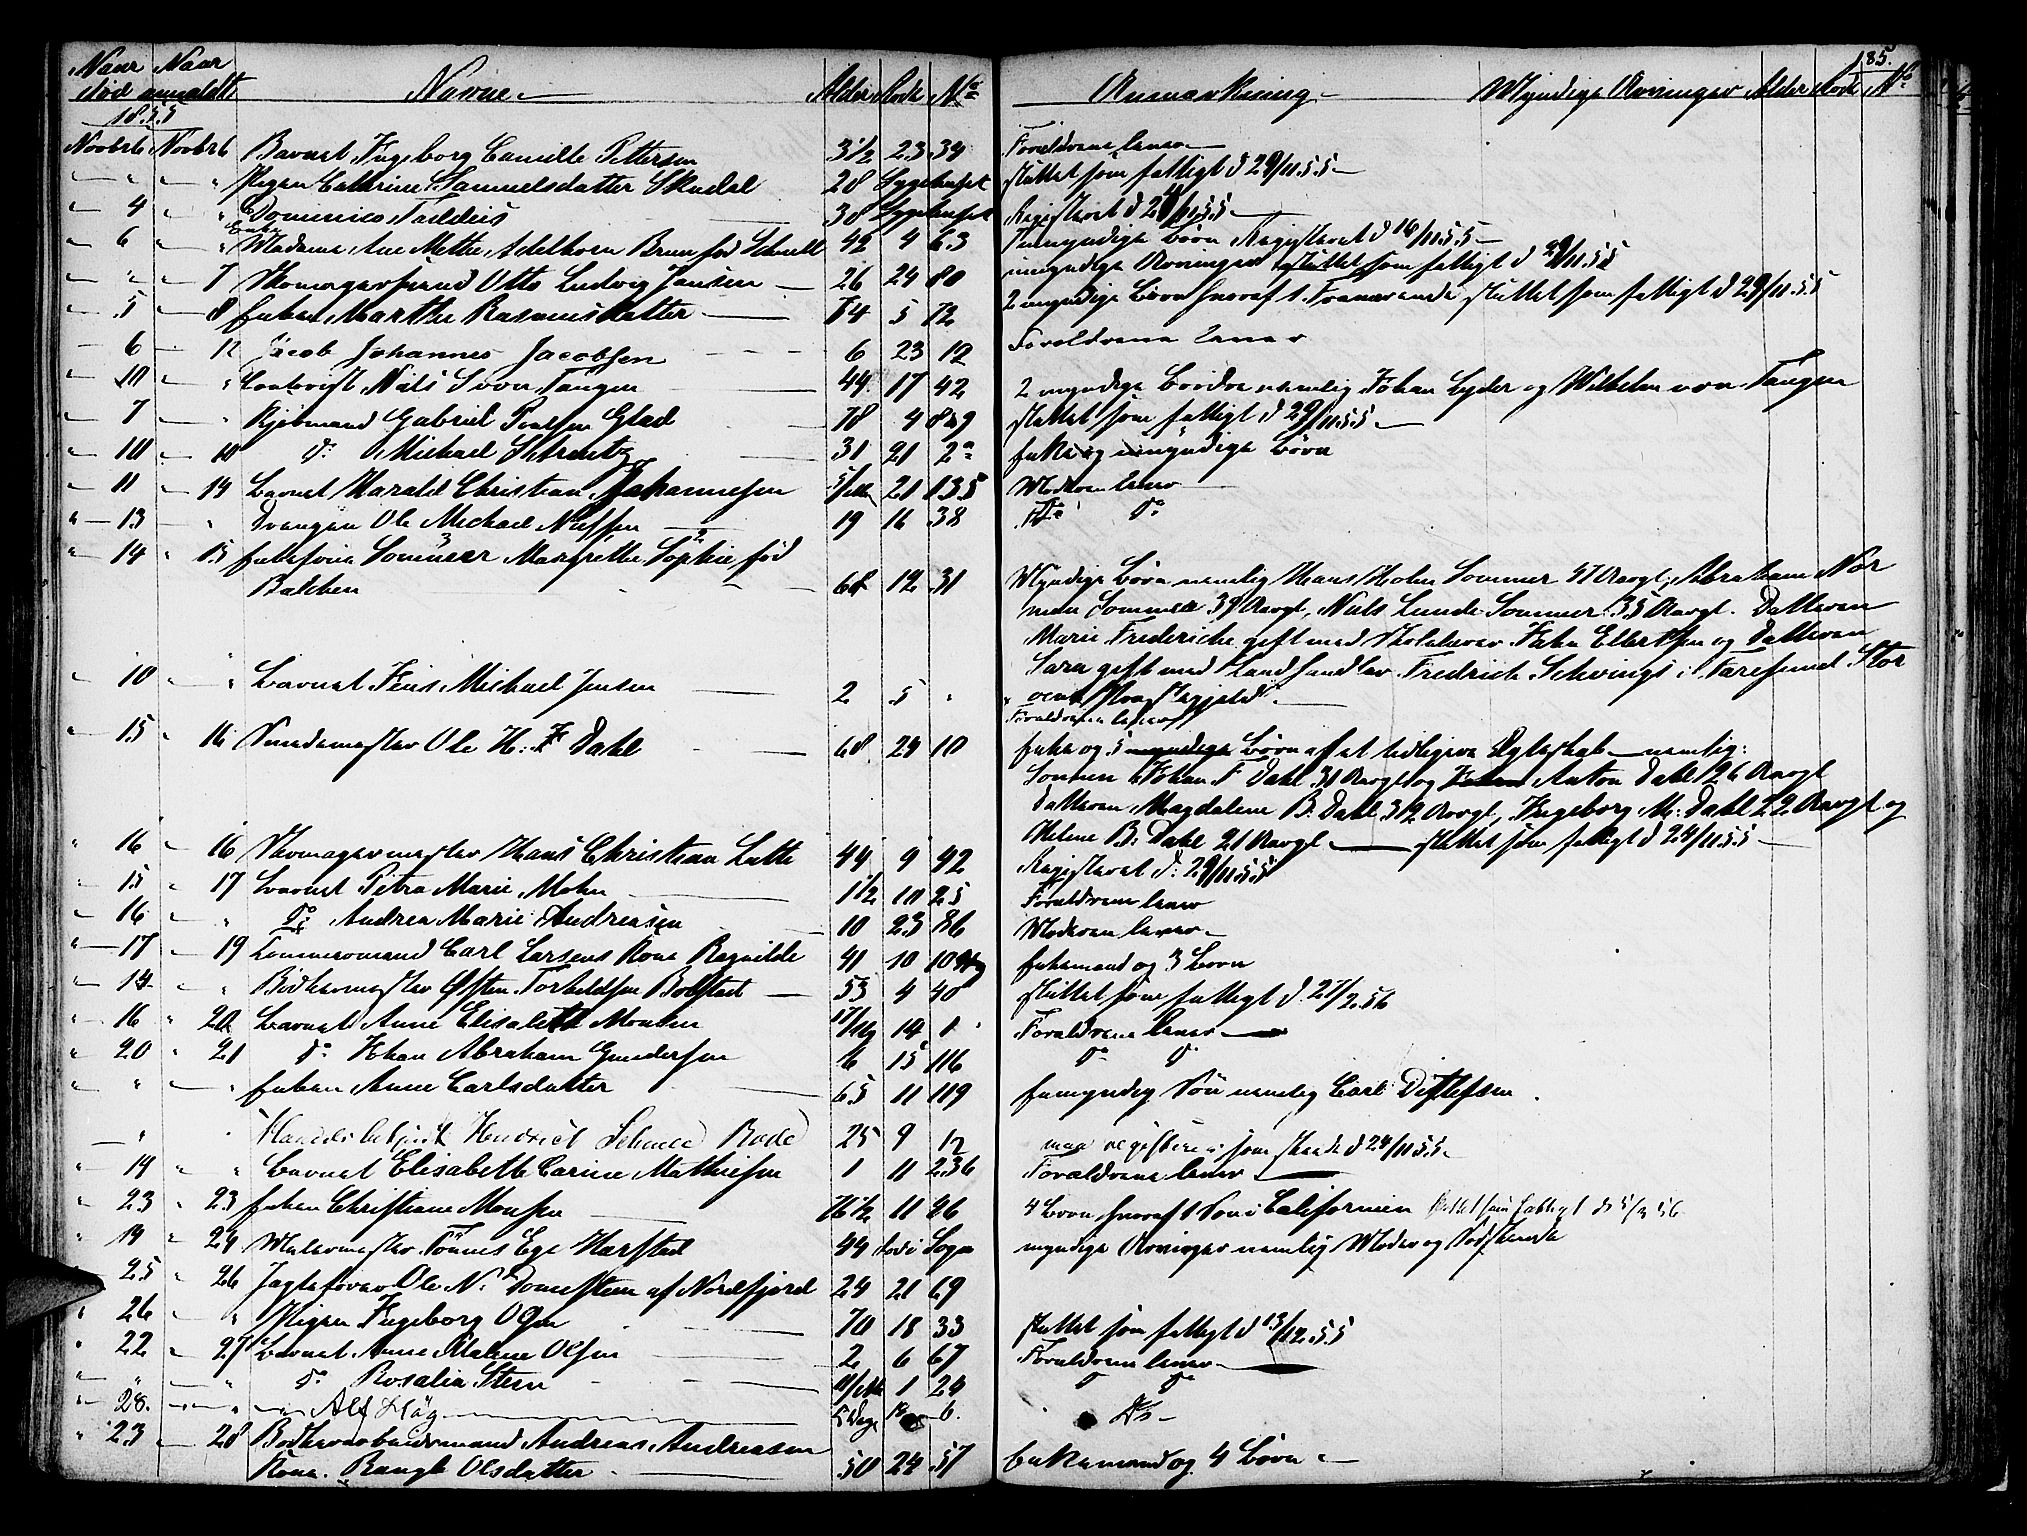 185.
Naar Naar
død anmeldt Navne Alder Rode No Anmærkning Myndige Arvinger Alder Rode No
1855
Novbr 6 Novbr 6 Barnet Ingeborg Camille Pettersen 3 1/2 23 34 Forældrene lever
" " Pigen Cathrine Samuelsdatter Skudal 28 Sygehuset sluttet som fattigt d 29/11 55
4 " Dominico Taddeis 38 Sygehuset Registreret d 24/11 55
6 " Enke Madame Ane Mette Adelhorn Brun fød Schmidt 42 4 63 umyndige Børn Registreret d 16/11 55
" 7 Skomagersvend Otto Ludvig Jansen 26 24 80 umyndige Arvinger sluttet som fattigt d 29/11 55
5 8 Enken Marthe Rasmusdatter 84 5 72 2 myndige Børn hvoraf 1 fraværende sluttet som fattigt d 29/11 55
6 12 Jacob Johannes Jacobsen 6 23 12 Forældrene lever
10 " Contorist Niels Svon Tangen 44 17 42 2 myndige Brødre nemlig Johan Lyder og Wilhelm von Tangen
7 " Kjøbmand Gabriel Poulsen Glad 78 4 8 sluttet som fattigt d 29/11 55
10 10 do Michael Schrentz 31 21 2a Enke og umyndige Børn
11 14 Barnet Harald Christian Johannesen 21 135 Moderen lever
13 " Drengen Ole Michael Nielsen 19 16 38 Do do
14 15 Enkefrue Sommer Margrethe Sophie fød
Balchen 68 12 31 Myndige Børn nemlig Hans Holm Sommer 41 Aargl, Abraham Nor
man Sommer 39 Aargl, Niels Lunde Sommer 35 Aargl. Datteren
Marie Frederiche gift med Skolelærer Johan Ellertsen og Datteren
Sara gift med Landhandler Fredrich Schvings i Faresund Stor
10 " Barnet Jens Michael Jensen 2 5 " Præstegjeld
Forældrene lever
15 16 Smedemester Ole H: F Dahl 68 24 10 Enke og 5 myndige Børn af et tidligere Ægteskab nemlig:
Sønnen Johan F Dahl 31 Aargl og Anton Dahl 26 Aargl
Datteren Magdalene B. Dahl 32 Aargl, Ingeborg M: Dahl 22 Aargl og
Helene B: Dahl 21 Aargl sluttet som fattigt d 24/11 55
16 16 Skomagermester Hans Christian Lutte 44 9 92 Registreret d: 29/11 55
15 17 Barnet Petra Marie Mohn 1 1/2 10 25 Forældrene lever
16 " Do Andrea Marie Andreasen 10 23 86 Moderen lever
17 19 Tømmermand Carl Larsens Kone Ragnilde 41 10 109 Enkemand og 3 Børn
14 " Bødkermester Østen Torkildsen Bolstad 53 4 40 sluttet som fattigt d. 27/2 56
16 20 Barnet Anne Elisabeth Monsen 17/Dg 14 1 Forældrene lever
20 21 do Johan Abraham Gundersen 6 15 116 do do
" " Enken Anne Carlsdatter 65 11 119 En myndig Søn nemlig Carl Ditlefsen
" " Handelsbetjent Hendrich Rode 25 9 12 maa registreres som skeede d 24/11 55
19 " Barnet Elisabeth Carine Mathiesen 1 11 236 Forældrene lever
23 23 Enken Christiane Monsen 76 1/2 11 86 4 Børn hvoraf 1 Søn i Californien sluttet som fattigt d 5/3 56
19 24 Malermester Tønnes Ege Harstad 44 Død i Sogn myndige Arvinger nemlig Moder og Sødskende
25 26 Jagtefører Ole N. Domestein af Nordfjord 24 21 69
26 " Pigen Ingeborg Olsen 70 18 33 sluttet som fattigt d 13/12 55
22 27 Barnet Anne Malene Olsen 2 6 67 Forældrene lever
" " do Rosalia Stem 11/Mdr 1 24 do do
28. " " Alf Høg 5 Dage 6. Do
23 28 Bødkerarbeidsmand Andreas Andreasen
Kone Rangle Olsdatter 50 24 57 Enkemand og 4 Børn